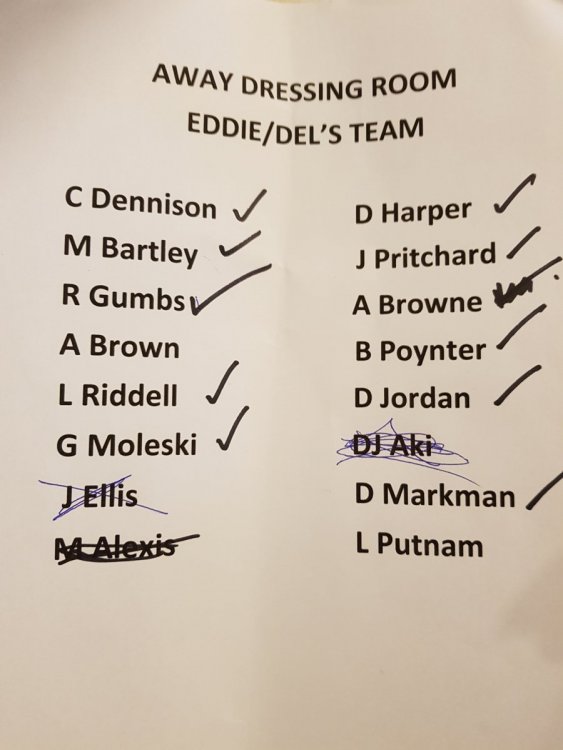 AWAY DRESSING ROOM
EDDIE/DEL'S TEAM
C Dennison
M Bartley
R Gumbs
A Brown
L Riddell
G Moleski
J Ellis
M Alexis
D Harper
J Pritchard
A Browne
B Poynter
D Jordan
DJ Aki
D Markman
L Putnam